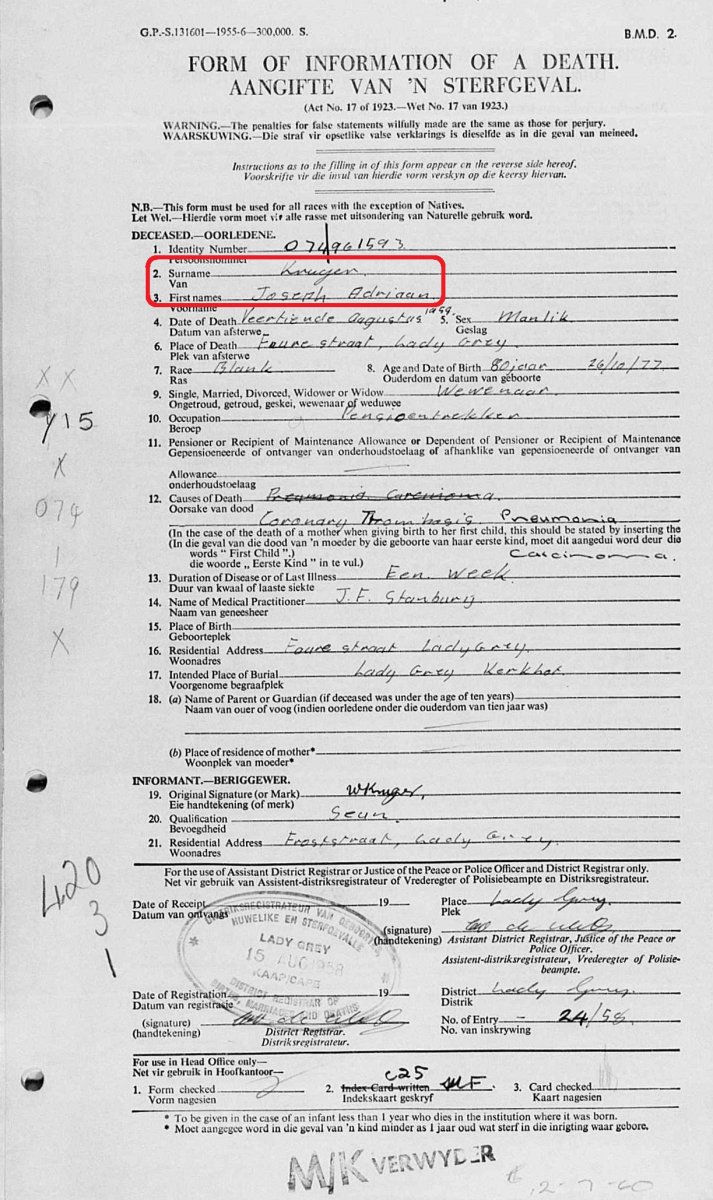 G.P.-S.131601—1955-6—300,000. S.
B.M.D. 2.
FORM OF INFORMATION OF A DEATH.
AANGIFTE VAN 'N STERFGEVAL.
(Act No. 17 of 1923.—Wet No. 17 van 1923.)
WARNING.—The penalties for false statements wilfully made are the same as those for perjury.
WAARSKUWING.—Die straf vir opsetlike valse verklarings is dieselfde as in die geval van meineed.
Instructions as to the filling in of this form appear on the reverse side hereof.
Voorskrifte vir die invul van hierdie vorm verskyn op die keersy hiervan.
N.B.—This form must be used for all races with the exception of Natives.
Let Wel.—Hierdie vorm moet vir alle rasse met uitsondering van Naturelle gebruik word.
DECEASED.—OORLEDENE.
1. Identity Number 074961593
Persoonsnommer
2. Surname Kruger.
Van
3. First names Joseph Adriaan.
Voorname
4. Date of Death Veertiende Augustus 5. Sex Manlik
Datum van afsterwe Geslag
6. Place of Death Foure straat, Lady Grey.
Plek van afsterwe
7. Race Blank 8. Age and Date of Birth 80 jaar 26/10/77
Ras Ouderdom en datum van geboorte
9. Single, Married, Divorced, Widower or Widow Wewenaar.
Ongetroud, getroud, geskei, wewenaar of weduwee
10. Occupation Pensioentrekker
Beroep
11. Pensioner or Recipient of Maintenance Allowance or Dependent of Pensioner or Recipient of Maintenance
Gepensioeneerde of ontvanger van onderhoudstoelaag of afhanklike van gepensioeneerde of ontvanger van
Allowance
onderhoudstoelaag
12. Causes of Death Pneumonia Carcinoma.
Oorsake van dood
Coronary Thrombosis. Pneumonia
(In the case of the death of a mother when giving birth to her first child, this should be stated by inserting the
(In die geval van die dood van 'n moeder by die geboorte van haar eerste kind, moet dit aangedui word deur die
words "First Child".) Carcinoma.
die woorde „Eerste Kind" in te vul.)
13. Duration of Disease or of Last Illness Een week
Duur van kwaal of laaste siekte
14. Name of Medical Practitioner J.F. Stanbury
Naam van geneesheer
15. Place of Birth
Geboorteplek
16. Residential Address Foure straat Lady Grey.
Woonadres
17. Intended Place of Burial Lady Grey Kerkhof.
Voorgenome begraafplek
18. (a) Name of Parent or Guardian (if deceased was under the age of ten years)
Naam van ouer of voog (indien oorledene onder die ouderdom van tien jaar was)
(b) Place of residence of mother*
Woonplek van moeder*
INFORMANT.—BERIGGEWER.
19. Original Signature (or Mark) WKruger.
Eie handtekening (of merk)
20. Qualification Seun.
Bevoegdheid
21. Residential Address Froststraat, Lady Grey.
Woonadres
For the use of Assistant District Registrar or Justice of the Peace or Police Officer and District Registrar only.
Net vir gebruik van Assistent-distriksregistrateur of Vrederegter of Polisiebeampte en Distriksregistrateur.
Date of Receipt 19 Place Lady Grey.
Datum van ontvangs Plek
(signature)
(handtekening) Assistant District Registrar, Justice of the Peace or
Police Officer.
Assistent-distriksregistrateur, Vrederegter of Polisie-
beampte.
DISTRIKSREGISTRATEUR VAN GEBOORTES
HUWELIKE EN STERFGEVALLE
LADY GREY
15 AUG 1958
KAAP/CAPE
DISTRICT REGISTRAR OF
BIRTHS, MARRIAGES AND DEATHS
Date of Registration 19 District Lady Grey
Datum van registrasie Distrik
(signature) No. of Entry - 24/58.
(handtekening) District Registrar. No. van inskrywing
Distriksregistrateur.
For use in Head Office only—
Net vir gebruik in Hoofkantoor— C25
1. Form checked 2. Index Card written MF. 3. Card checked
Vorm nagesien Indekskaart geskryf Kaart nagesien
* To be given in the case of an infant less than 1 year who dies in the institution where it was born.
* Moet aangegee word in die geval van 'n kind minder as 1 jaar oud wat sterf in die inrigting waar gebore.
M/K VERWYDER
2-7-60
X X
Y15
X
074
1
179
X
420
3
1